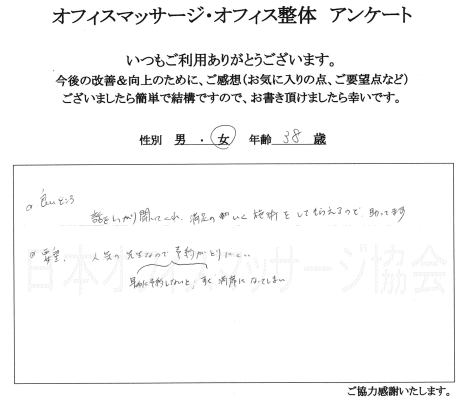 オフィスマッサージ・オフィス整体 アンケート
いつもご利用ありがとうございます。
今後の改善＆向上のために、ご感想（お気に入りの点、ご要望点など）
ございましたら簡単で結構ですので、お書き頂けましたら幸いです。
性別 男 ・ 女 年齢 38 歳
良いところ
話をしっかり聞いてくれ、満足の いく 施術をしてもらえるので 助ってます
要望、 人気の先生なので 予約がとりにくい
早めに予約しないと、すぐ 満席になってしまい
日本オフィスマッサージ協会
ご協力感謝いたします。